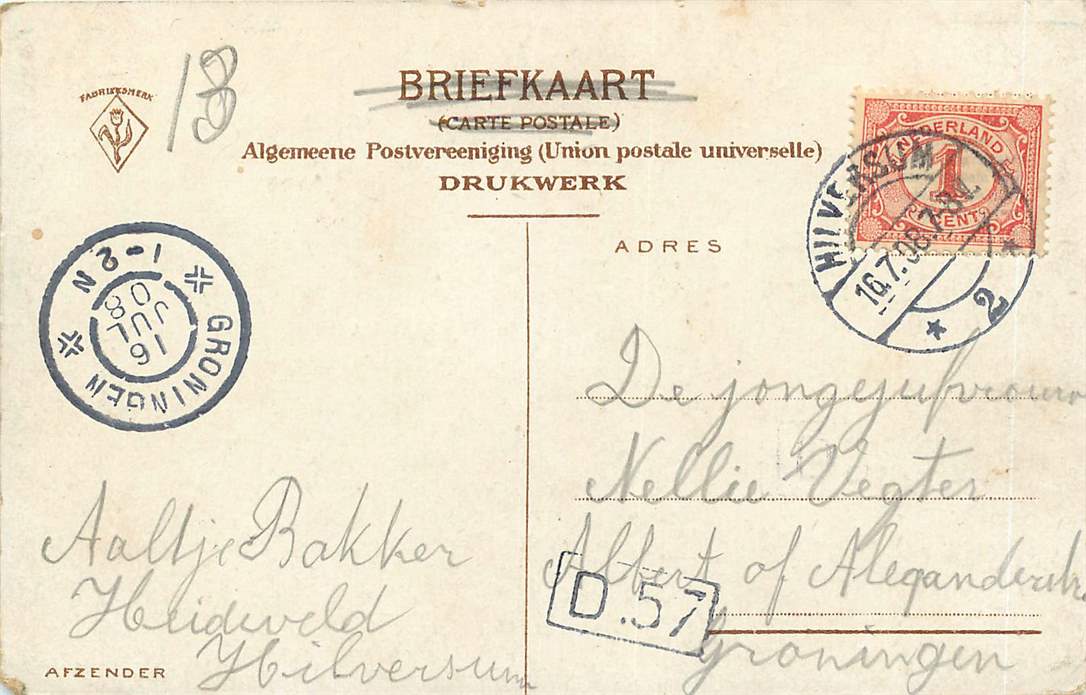 FABRIEKSMERK
18
BRIEFKAART
(CARTE POSTALE)
Algemeene Postvereeniging (Union postale universelle)
DRUKWERK
ADRES
NEDERLAND
1
CENT
HILVERSUM
16.7.08.7-8V.
2
GRONINGEN
16 JUL 08
1-2 N
De jongejufvrouw
Nellie Vegter
Albert of Aleganderstr.
Groningen
D.57
Aaltje Bakker
Heideveld
Hilversum
AFZENDER